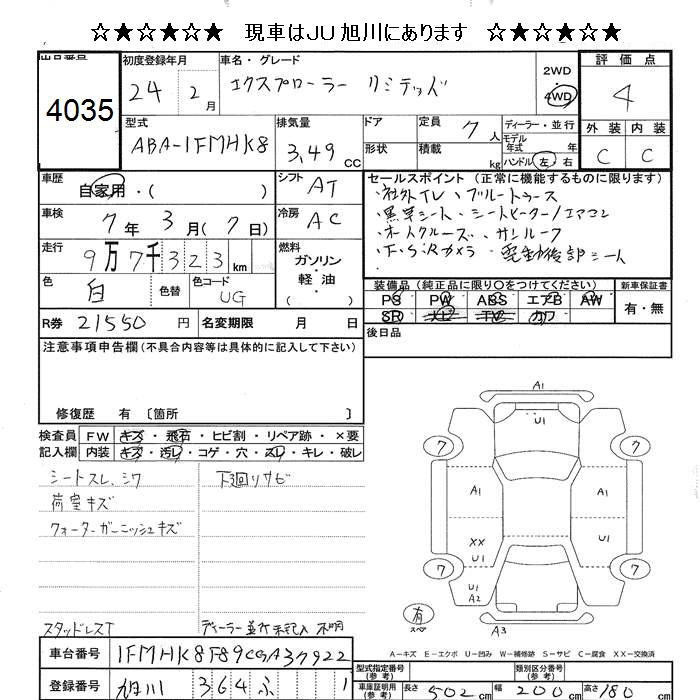 ☆★☆★☆★ 現車はJU旭川にあります ☆★☆★☆★
出品番号
4035
初度登録年月
24 2月
車名・グレード
エクスプローラー リミテッド
2WD
4WD
評価点
4
型式
ABA-1FMHK8
排気量
3,49 cc
ドア
形状
定員 7人
積載 kg
ディーラー・並行
モデル年式 年
ハンドル 左 右
外装 内装
C C
車歴
自家用・( )
シフト AT
車検
7年3月(7日)
冷房 AC
走行
9万7千323km
燃料
ガソリン・軽油
( )
色
白
色替
色コード
UG
R券 21550円
名変期限 月 日
セールスポイント(正常に機能するものに限ります)
・社外TV、ブルートゥース
・黒革シート、シートヒーター/エアコン
・オートクルーズ、サンルーフ
・F、S、Rカメラ、電動後部シート
装備品(純正品に限り〇をつけてください)
PS PW ABS エアB AW
SR ナビ TV カワ
新車保証書
有・無
後日品
注意事項申告欄(不具合内容等は具体的に記入して下さい)
修復歴 有〔箇所 〕
検査員記入欄
FW キズ・飛石・ヒビ割・リペア跡・×要
内装 キズ・汚レ・コゲ・穴・スレ・キレ・破レ
シートスレ、シワ
荷室キズ
クォーターガーニッシュキズ
下廻りサビ
スタッドレスT
ディーラー並行未記入 不明
A1
U1
7
7
A1
A1
XX
U1
U1
7
7
U1
A2
有
スペア
A3
A-キズ E-エクボ U-凹み W-補修跡 S-サビ C-腐食 XX-交換済
車台番号
1FMHK8F89CGA37922
登録番号
旭川 364 ふ 1
型式指定番号(参考)
類別区分番号(参考)
車庫証明用(参考)
長さ 502cm
幅 200cm
高さ 180cm